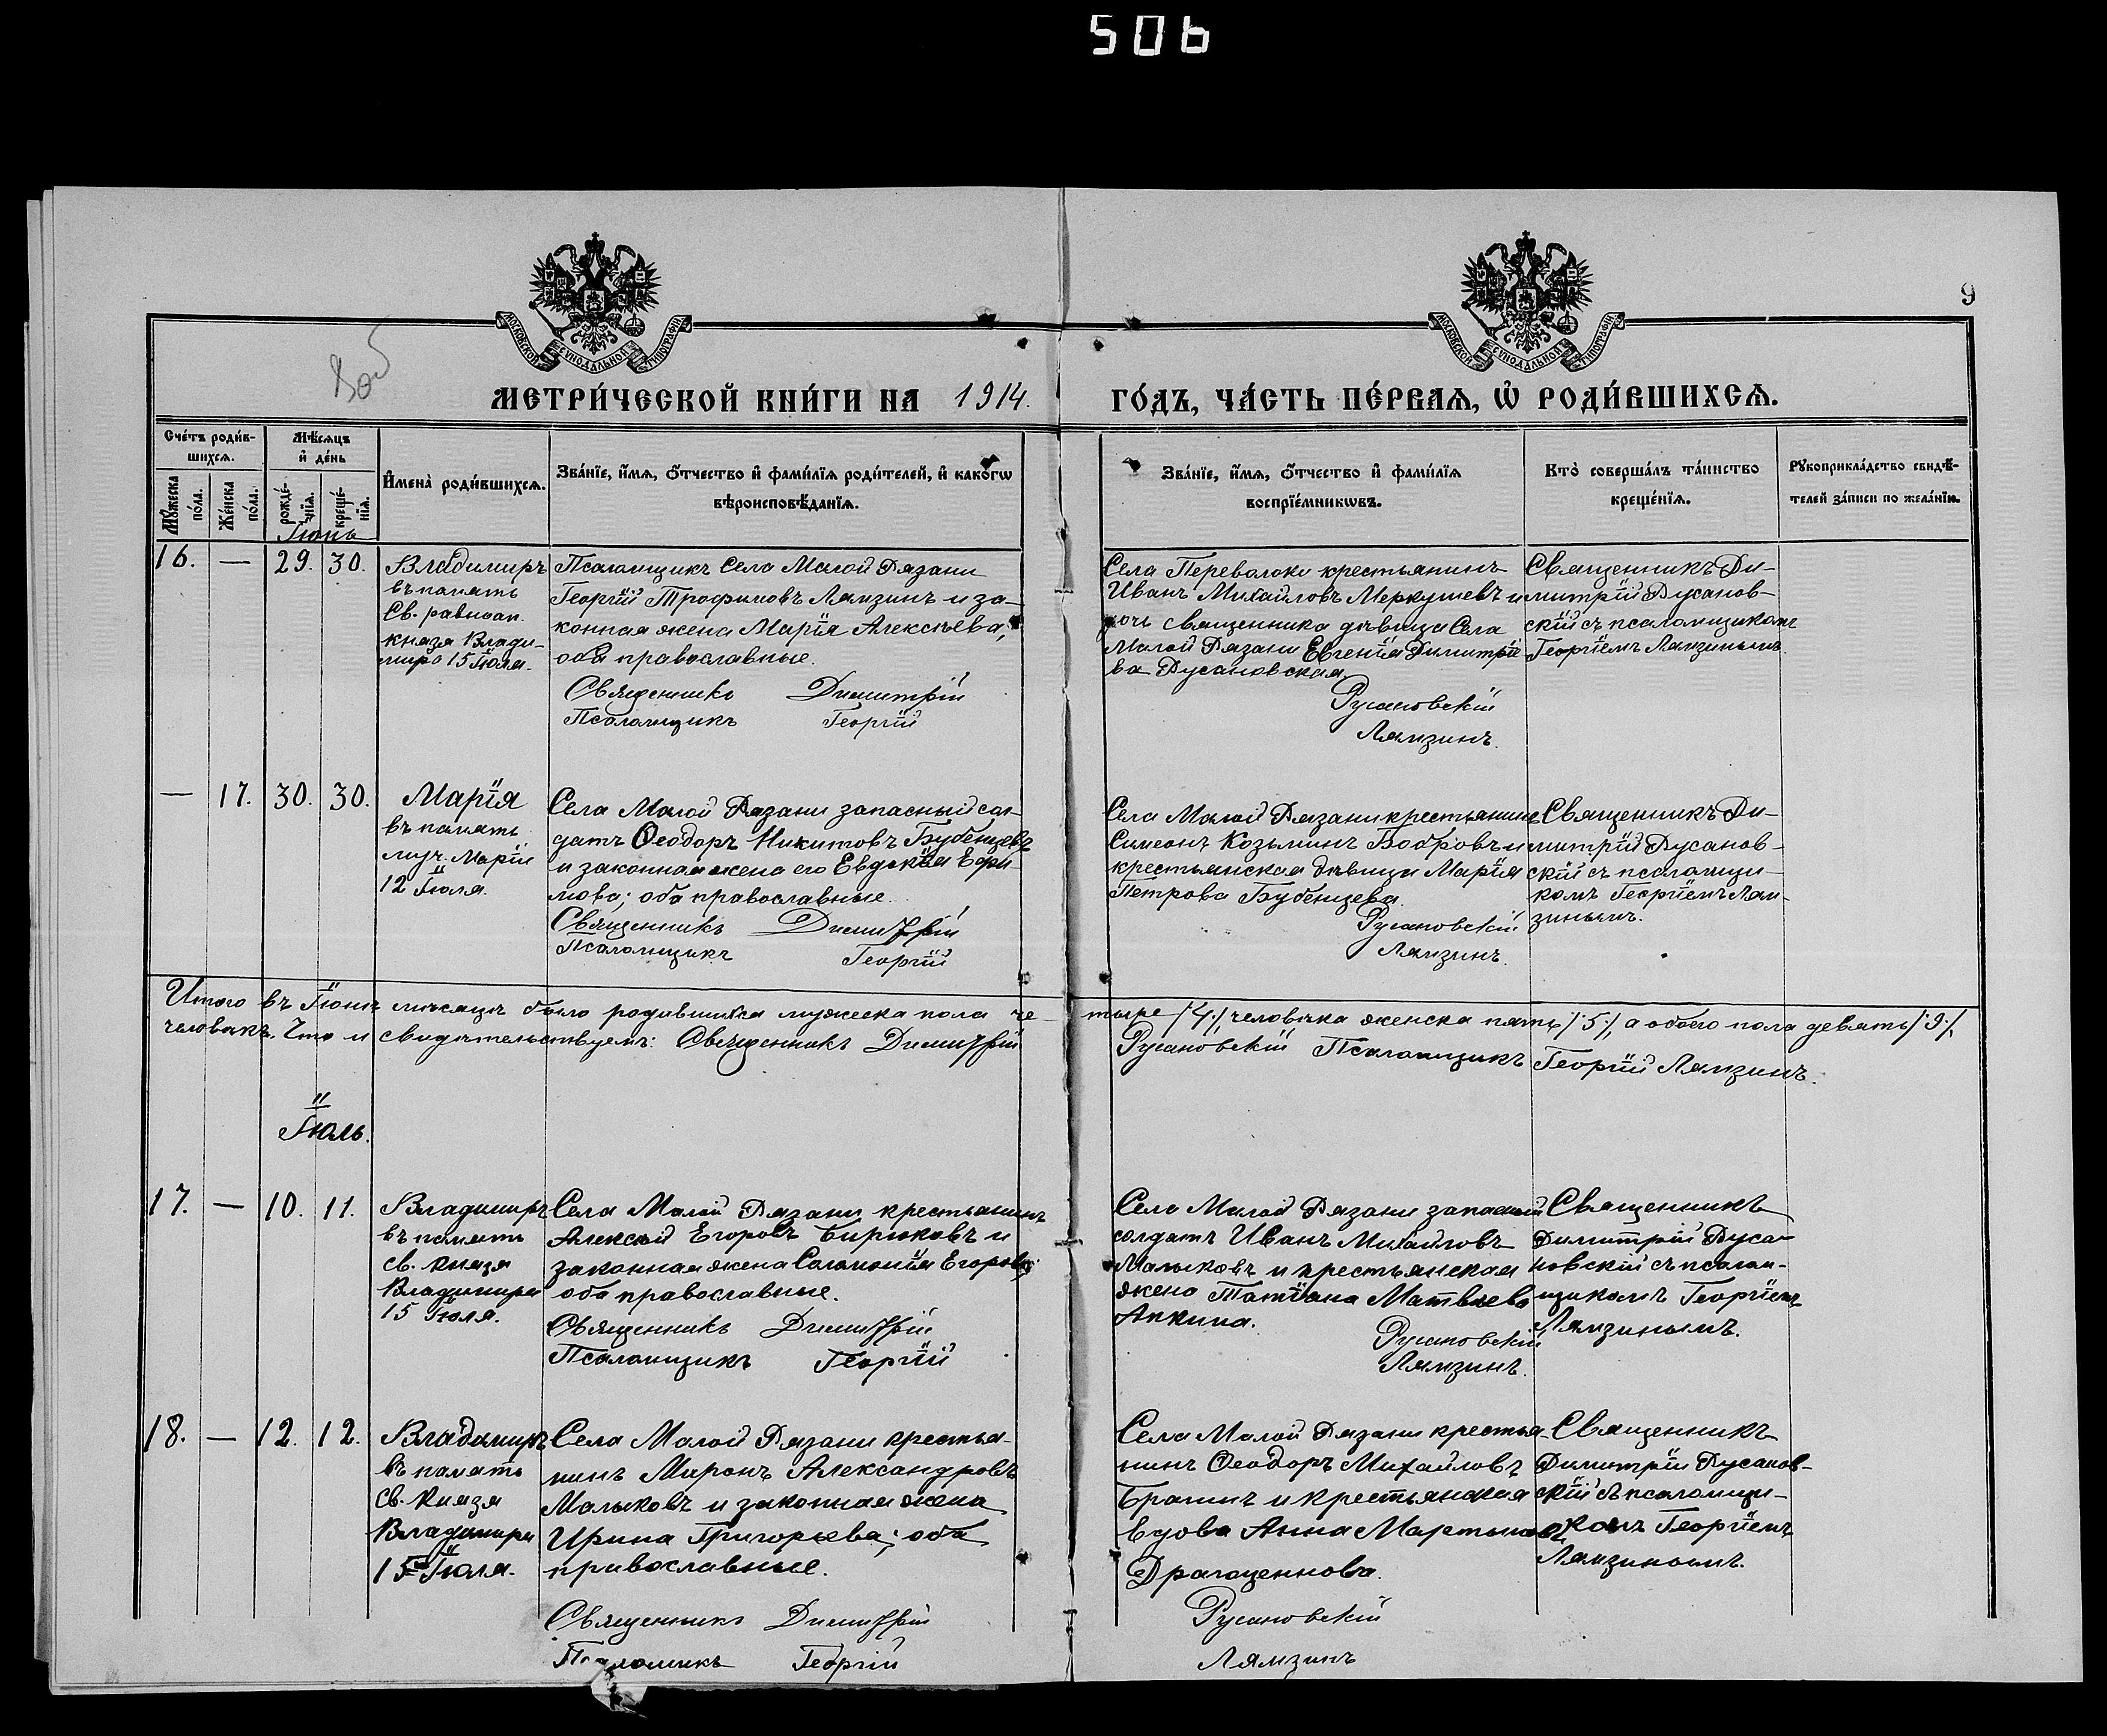 506
9
МОСКОВСКОЙ СѴНОДАЛЬНОЙ ТИПОГРАФІИ
МОСКОВСКОЙ СѴНОДАЛЬНОЙ ТИПОГРАФІИ
МЕТРИ́ЧЕСКОЙ КНИ́ГИ НА 1914. ГО́ДЪ, ЧА́СТЬ ПЕ́РВАѦ, Ѽ РОДИ́ВШИХСѦ.
Сче́тъ роди́в-
шихсѧ.
Мꙋ́жеска по́ла.
Же́нска по́ла.
Мѣ́сѧцъ
и҆ де́нь
рожде́-нїѧ.
креще́-нїѧ.
И҆мена̀ роди́вшихсѧ.
Зва́нїе, и҆́мѧ, ѻ҆́тчество и҆ фамі́лїѧ роди́телей, и҆ како́гѡ
вѣроисповѣ́данїѧ.
Зва́нїе, и҆́мѧ, ѻ҆́тчество и҆ фамі́лїѧ
воспрїе́мникѡвъ.
Кто̀ соверша́лъ та́инство
креще́нїѧ.
Рꙋкоприкла́дство свидѣ́-
телей за́писи по жела́нїю.
Іюнь
16. — 29. 30.
Владимиръ
въ память
Св. равноап.
князя Влади-
мира 15 Іюля.
Псаломщикъ Села Малой Рязани
Георгій Трофимовъ Лямзинъ и за-
конная жена Марія Алексѣева,
оба православные.
Священникъ Димитрій
Псаломщикъ Георгій
Села Переволоки крестьянинъ
Иванъ Михайловъ Меркушевъ и
дочь священника дѣвица Села
Малой Рязани Евгенія Димитріе-
ва Русановская.
Русановскій
Лямзинъ.
Священникъ Ди-
митрій Русанов-
скій съ псаломщикомъ
Георгіемъ Лямзинымъ.
— 17. 30. 30.
Марія
въ память
муч. Маріи
12 Іюля.
Села Малой Рязани запасный сол-
датъ Ѳеодоръ Никитовъ Бубенцевъ
и законная жена его Евдокія Ефи-
мова; оба православные.
Священникъ Димитрій
Псаломщикъ Георгій
Села Малой Рязани крестьянинъ
Симеонъ Козьминъ Бобровъ и
крестьянская дѣвица Марія
Петрова Бубенцева.
Русановскій
Лямзинъ.
Священникъ Ди-
митрій Русанов-
скій съ псаломщи-
комъ Георгіемъ Лям-
зинымъ.
Итого въ Іюнѣ мѣсяцѣ было родившихся мужеска пола че- тыре /:4:/, человѣка женска пять /:5:/, а обоего пола девять /:9:/,
человѣкъ. Что и свидѣтельствуемъ: Священникъ Димитрій Русановскій Псаломщикъ Георгій Лямзинъ.
Іюль.
17. — 10. 11.
Владимиръ
въ память
св. князя
Владимира
15 Іюля.
Села Малой Рязани крестьянинъ
Алексѣй Егоровъ Бирюковъ и
законная жена Саломонія Егорова;
оба православные.
Священникъ Димитрій
Псаломщикъ Георгій
Села Малой Рязани запасный
солдатъ Иванъ Михайловъ
Малыковъ и крестьянская
жена Татіана Матвѣева
Апкина.
Русановскій
Лямзинъ.
Священникъ
Димитрій Руса-
новскій съ псалом-
щикомъ Георгіемъ
Лямзинымъ.
18. — 12. 12.
Владимиръ
въ память
св. князя
Владимира
15 Іюля.
Села Малой Рязани крестья-
нинъ Миронъ Александровъ
Малыковъ и законная жена
Ирина Григорьева; оба
православные.
Священникъ Димитрій
Псаломщикъ Георгій
Села Малой Рязани крестья-
нинъ Ѳеодоръ Михайловъ
Брагинъ и крестьянская
вдова Анна Мартынова
Драгоценнова.
Русановскій
Лямзинъ
Священникъ
Димитрій Русанов-
скій съ псаломщи-
комъ Георгіемъ
Лямзинымъ.